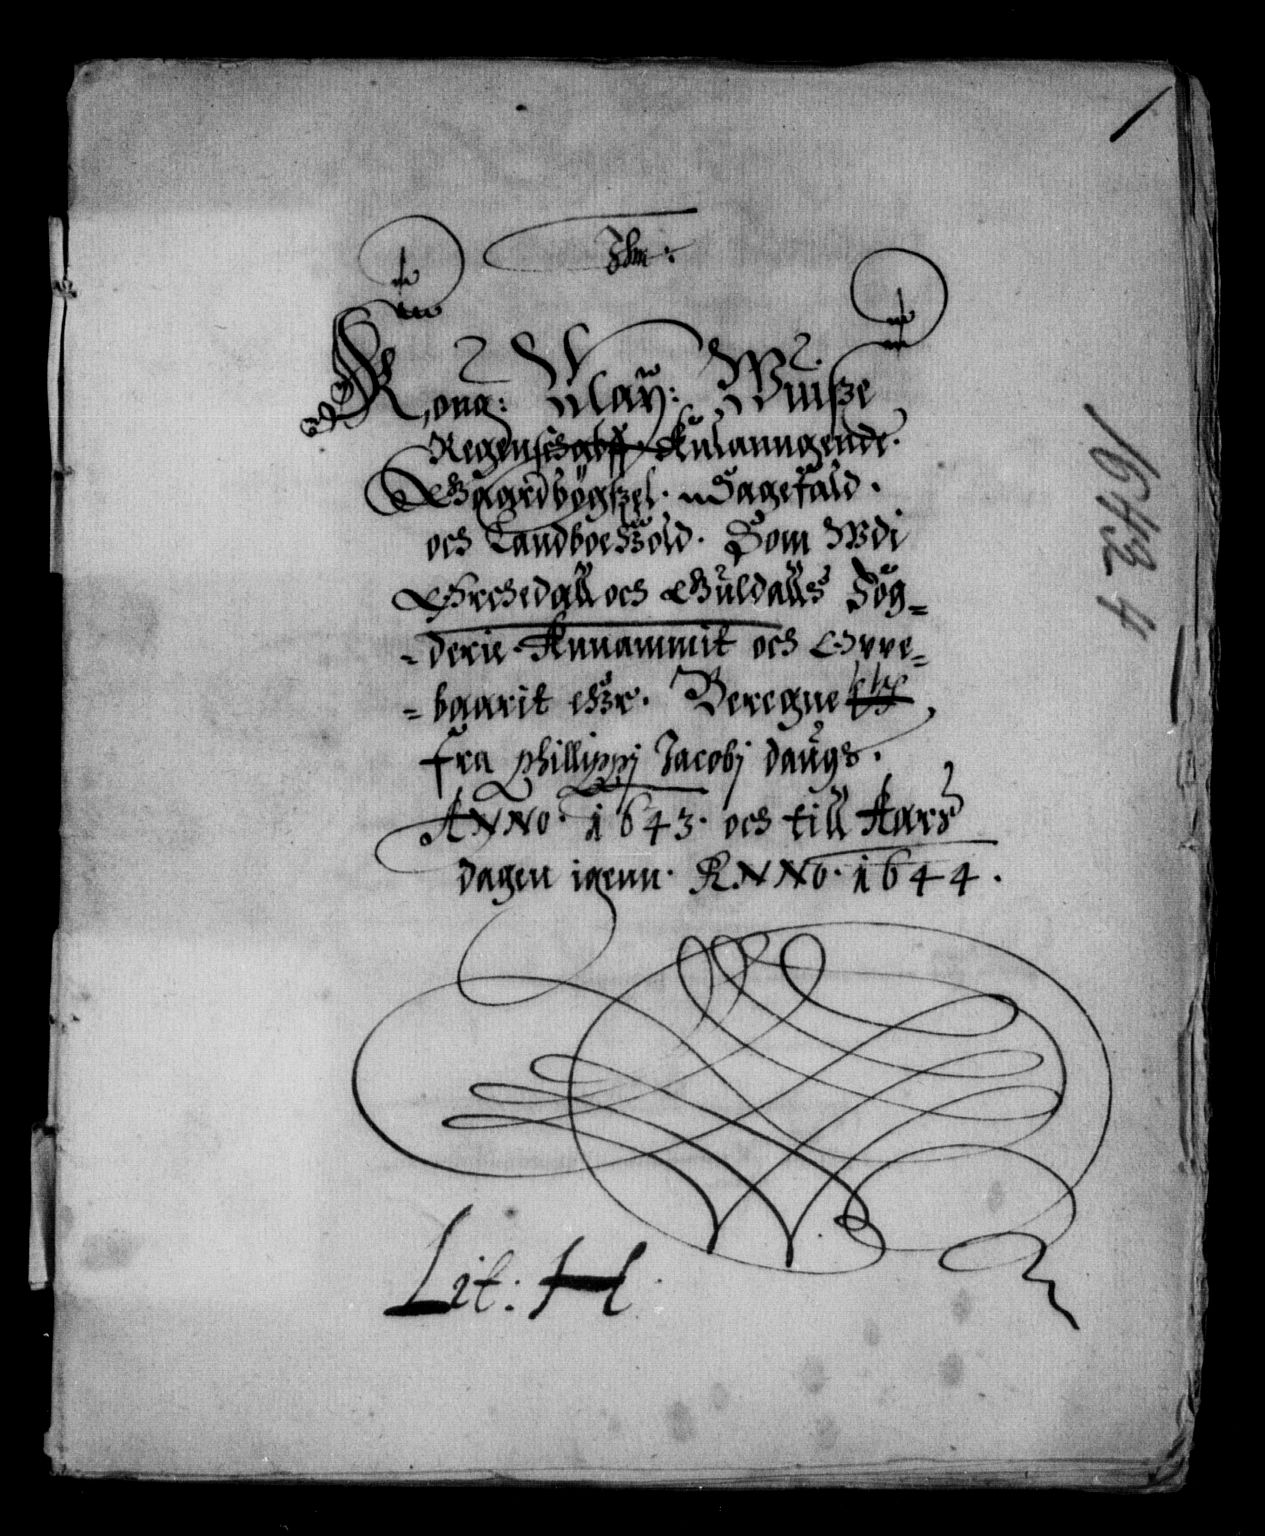 Ihm:
Kong: May: Wiisze
Regenschabff Anlanngende
Gaardbÿgszel. Sagefald.
och Landboehold. Som Wdi
Orchedall och Guldalls Fög-
-derie Annammit och Oppe-
-baarit ehr. Beregne
fra Phillippj Jacobj daugs.
ANNO. 1643. och till Aars
dagen igenn. ANNO. 1644.
Lit: H
1643 4